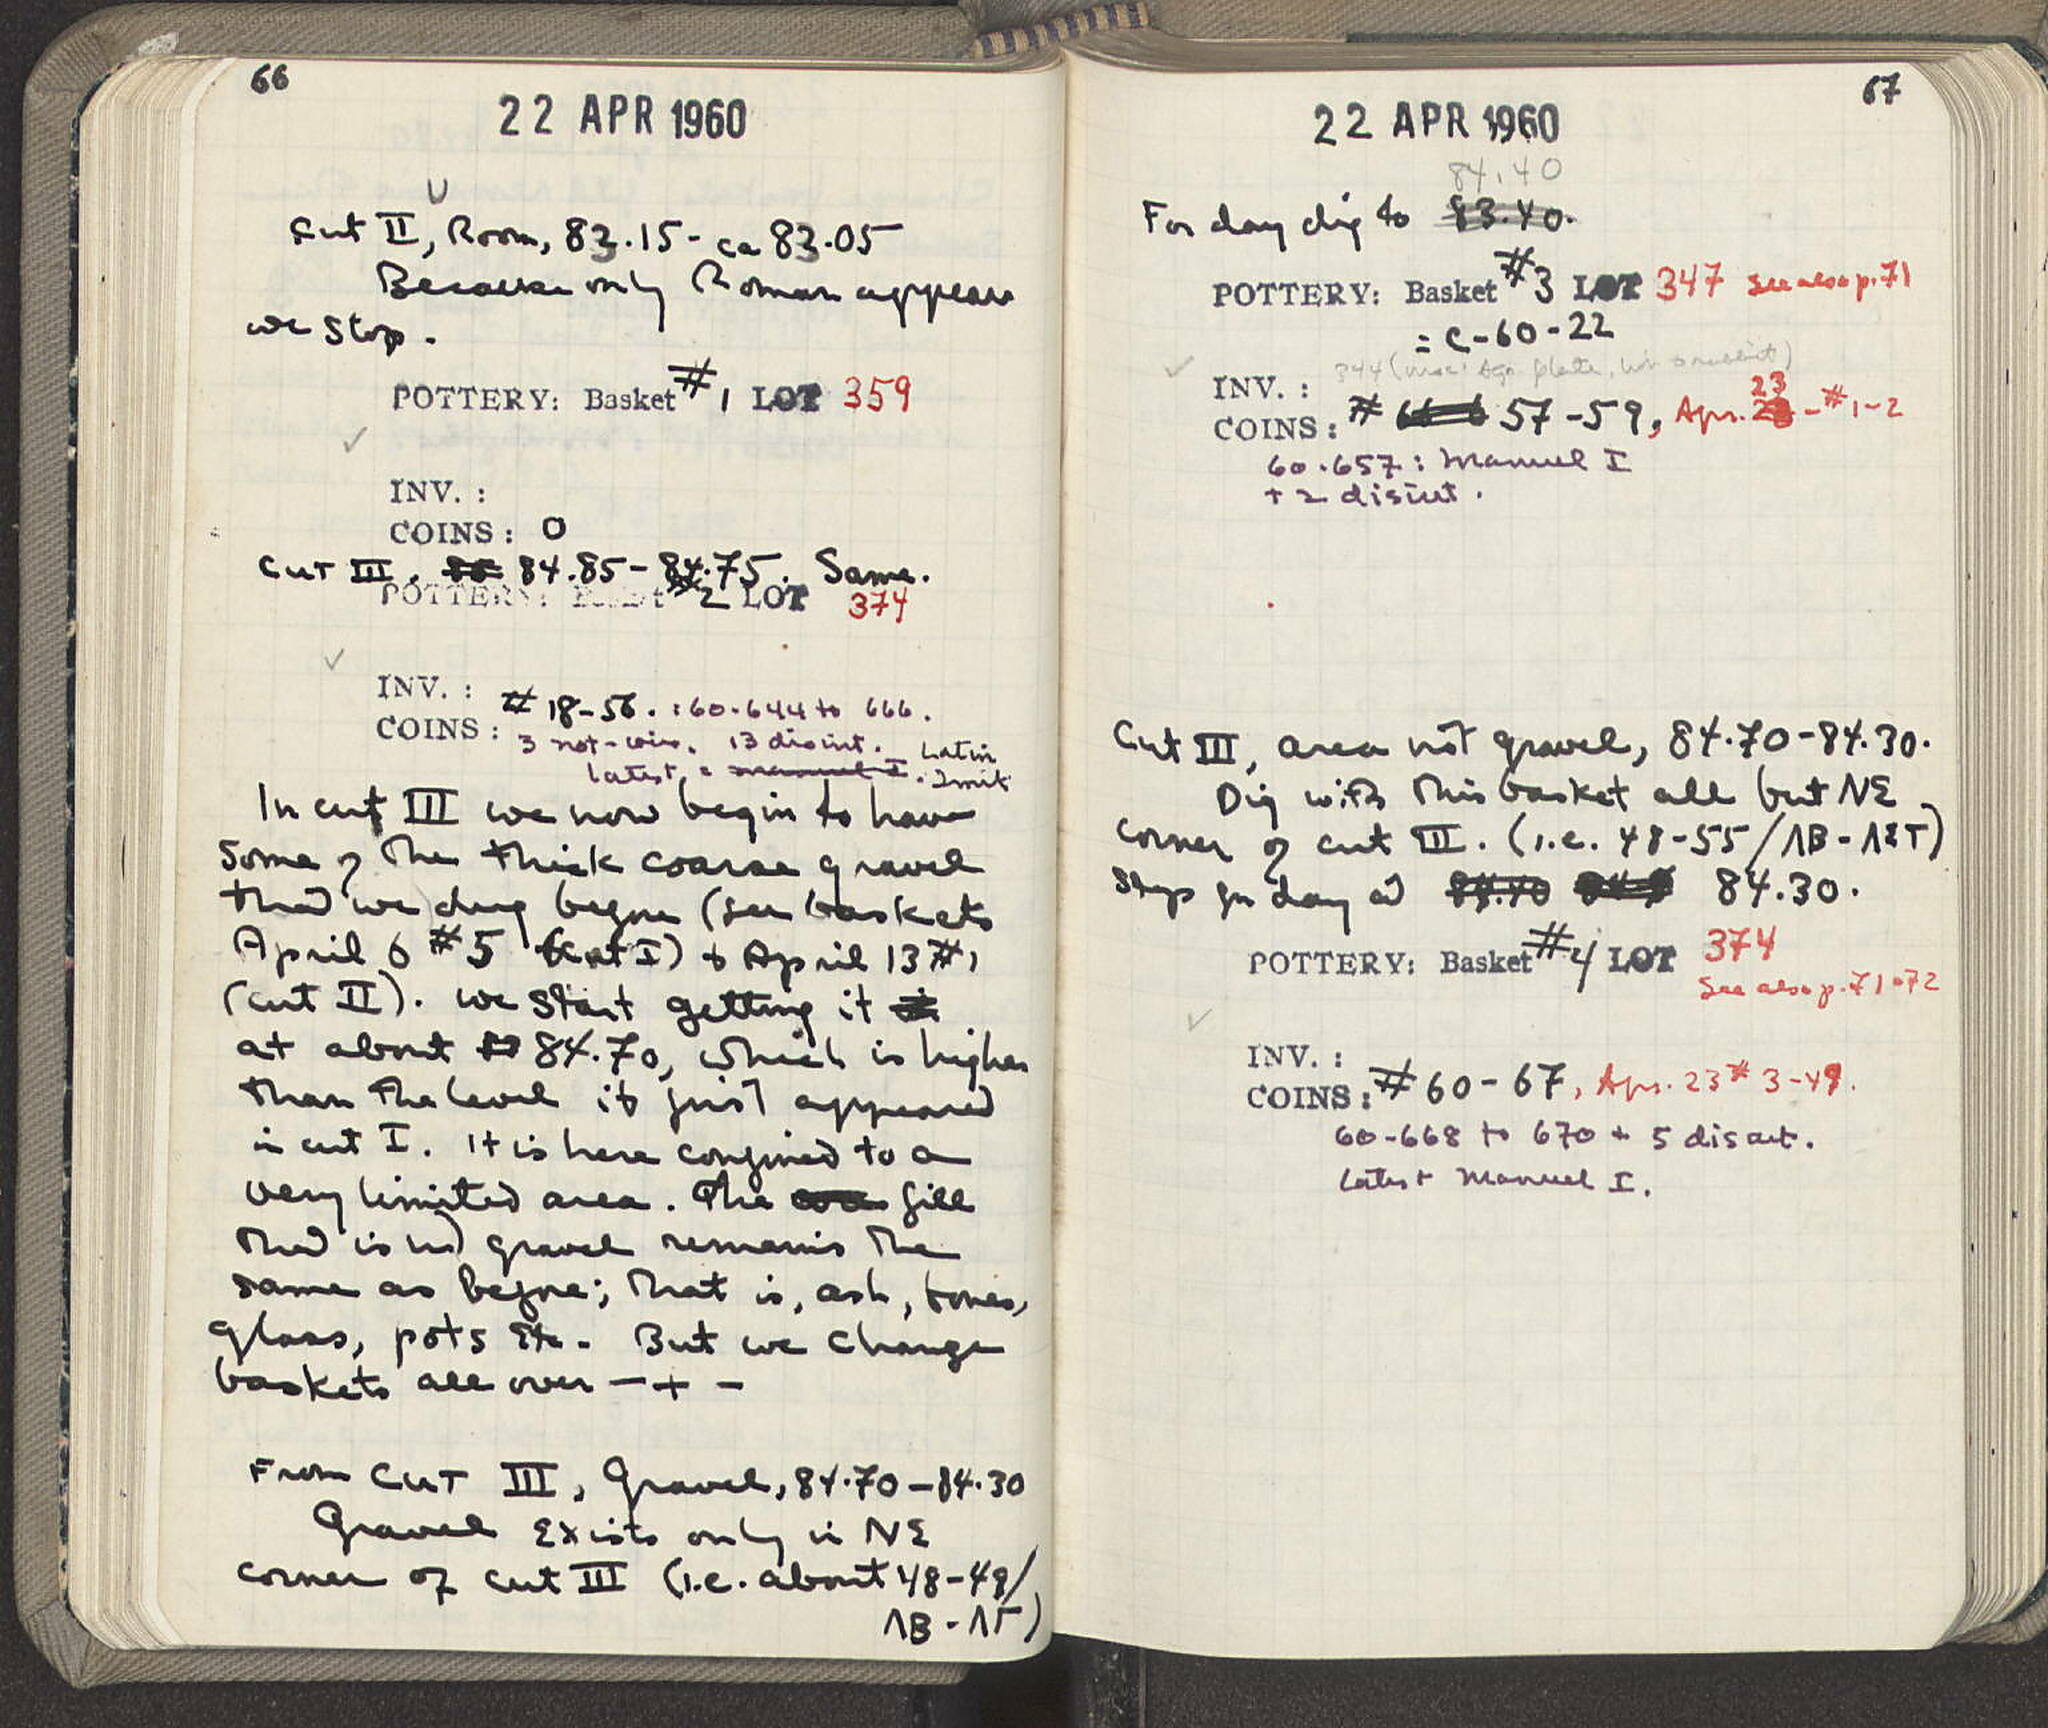 66
22 APR 1960
Cut II, Room, 83.15 - ca 83.05
Because only Roman appears
we stop.
POTTERY: Basket #1 LOT 359
INV. :
COINS: 0
Cut III, 84.85 - 84.75. Same.
POTTERY: Basket #2 LOT 374
INV. :
COINS: # 18-56. : 60-644 to 666.
3 not-coins. 13 disint.
latest = Manuel I. Latin Imit
In cut III we now begin to have
some of the thick coarse gravel
that we dug before (see baskets
April 6 #5 (cut I) + April 13 #1
(cut II). We start getting it
at about 84.70, which is higher
than the level it first appeared
in cut I. It is here confined to a
very limited area. The fill
that is not gravel remains the
same as before; that is, ash, bones,
glass, pots etc. But we change
baskets all over - + -
From Cut III, Gravel, 84.70 - 84.30
Gravel exists only in NE
corner of cut III (i.e. about 48-49/
ΛB - ΛΓ)
67
22 APR 1960
84.40
For day dig to 83.40.
POTTERY: Basket #3 LOT 347 See also p. 71
= C-60-22
INV. : 344
COINS: # 57-59, Apr. 23 - #1-2
60.657: Manuel I
+ 2 disint.
Cut III, area not gravel, 84.70 - 84.30.
Dig with this basket all but NE
corner of cut III. (i.e. 48-55/ΛB-ΛΣT)
Stop for day at 84.30.
POTTERY: Basket #4 LOT 374
See also p. 71 + 72
INV. :
COINS: # 60-67, Apr. 23 # 3-49.
60-668 to 670 + 5 disint.
Latest Manuel I.